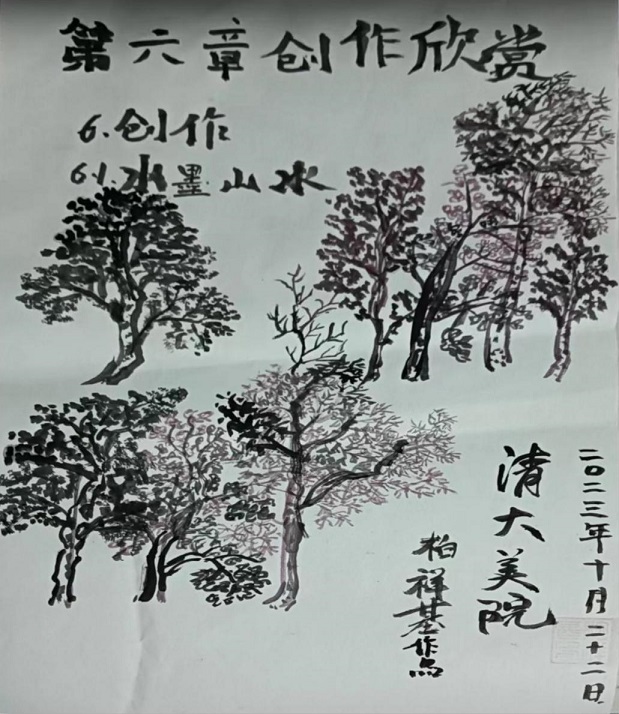 第六章创作欣赏
6.创作
6.1.水墨山水
二〇二三年十月二十二日
清大美院
柏祥基作